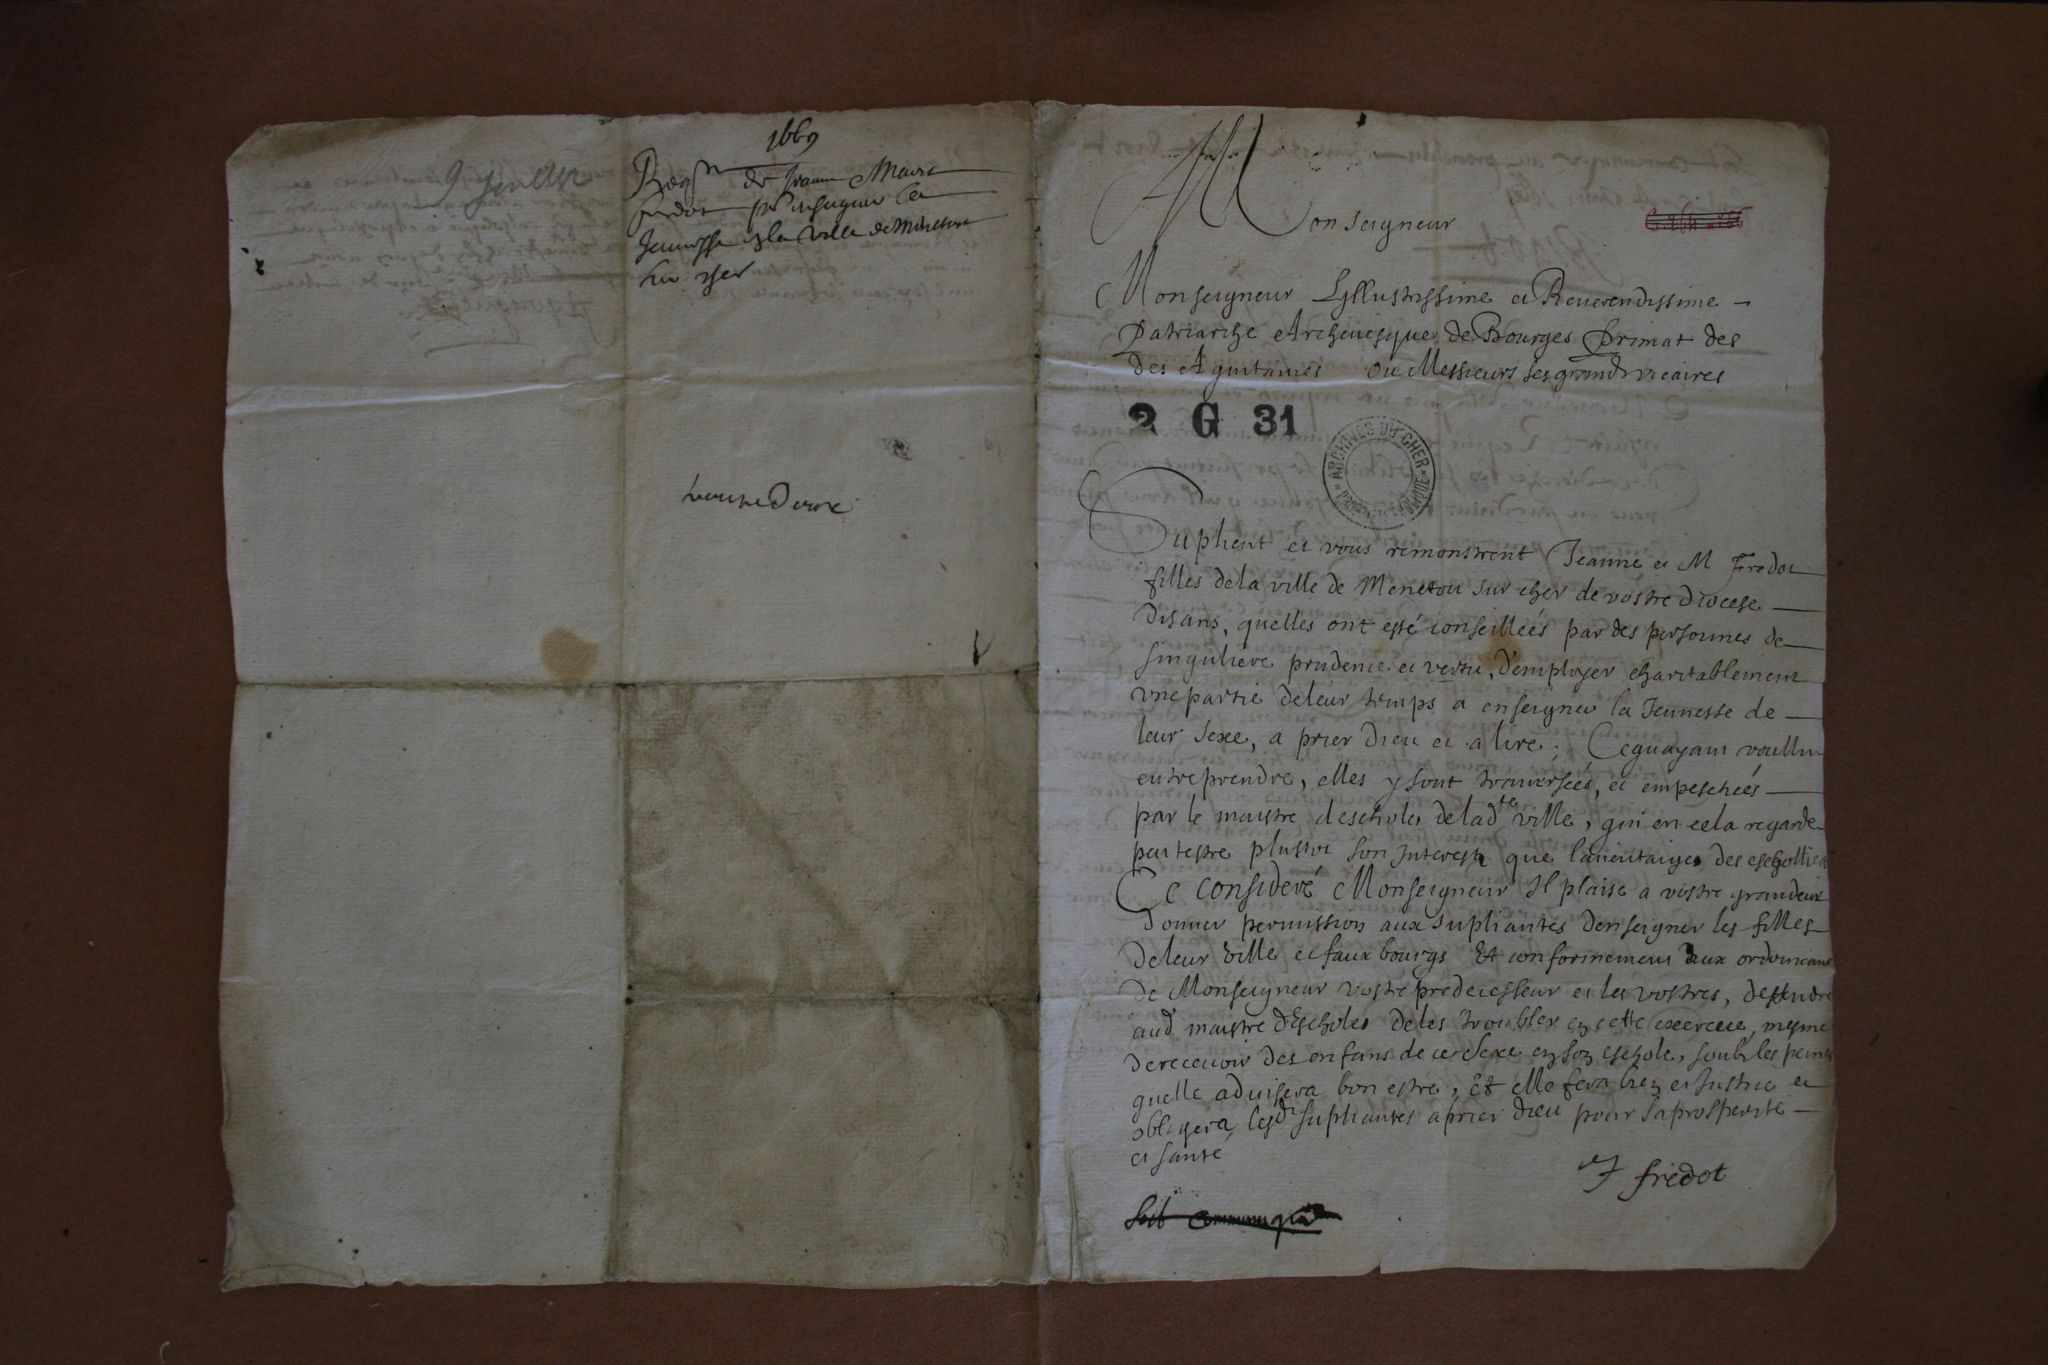 1669
9 Janvier
Reqte de Jeanne Marie
fredot pr enseigner la
Jeunesse en la ville de Menetou
sur cher
Monseigneur
Monseigneur Lyllustrissime et Reverendissime
Patriarche Archevesque de Bourges Primat des
des Aquitaines ou Messieurs ses grandz vicaires
2 G 31
ARCHIVES DU CHER
Suplient et vous remonstrent Jeanne et M Fredot
filles de la ville de Menetou sur cher de vostre diocese
disans, quelles ont esté conseillées par des personnes de
singuliere prudence et vertu, d'employer charitablement
une partie de leur temps a enseigner la Jeunesse de
leur sexe, a prier dieu et a lire. Ce quayant voullu
entreprendre, elles y sont traversées, et empeschées
par le maistre deschole de lad.te ville, qui en cela regarde
peutestre plustot son Interest que laventaige des escholliers
Ce consideré Monseigneur Il plaise a vostre grandeur
donner permission aux supliantes denseigner les filles
de leur ville et faux bourgs Et conformement aux ordonnances
de Monseigneur vostre predecesseur et les vostres, deffendre
aud. maistre dEschole de les troubler en cette exercice, mesme
de recevoir des enfans de ce sexe en son eschole, soubz les peines
quelle advisera bon estre, Et elle fera bien et Justice et
obligera lesd. supliantes a prier dieu pour sa prosperité
et santé
J fredot
Soit communiqué